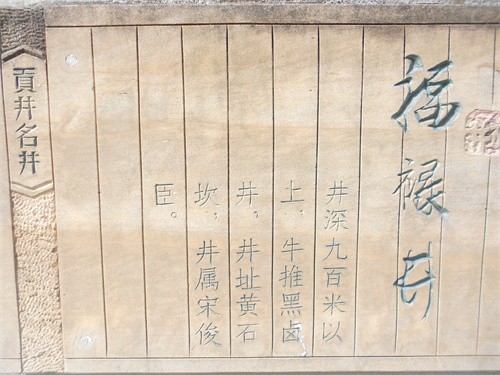 福禄井
井深九百米以
上，牛推黑卤
井。井址黄石
坎，井属宋俊
臣。
貢井名井